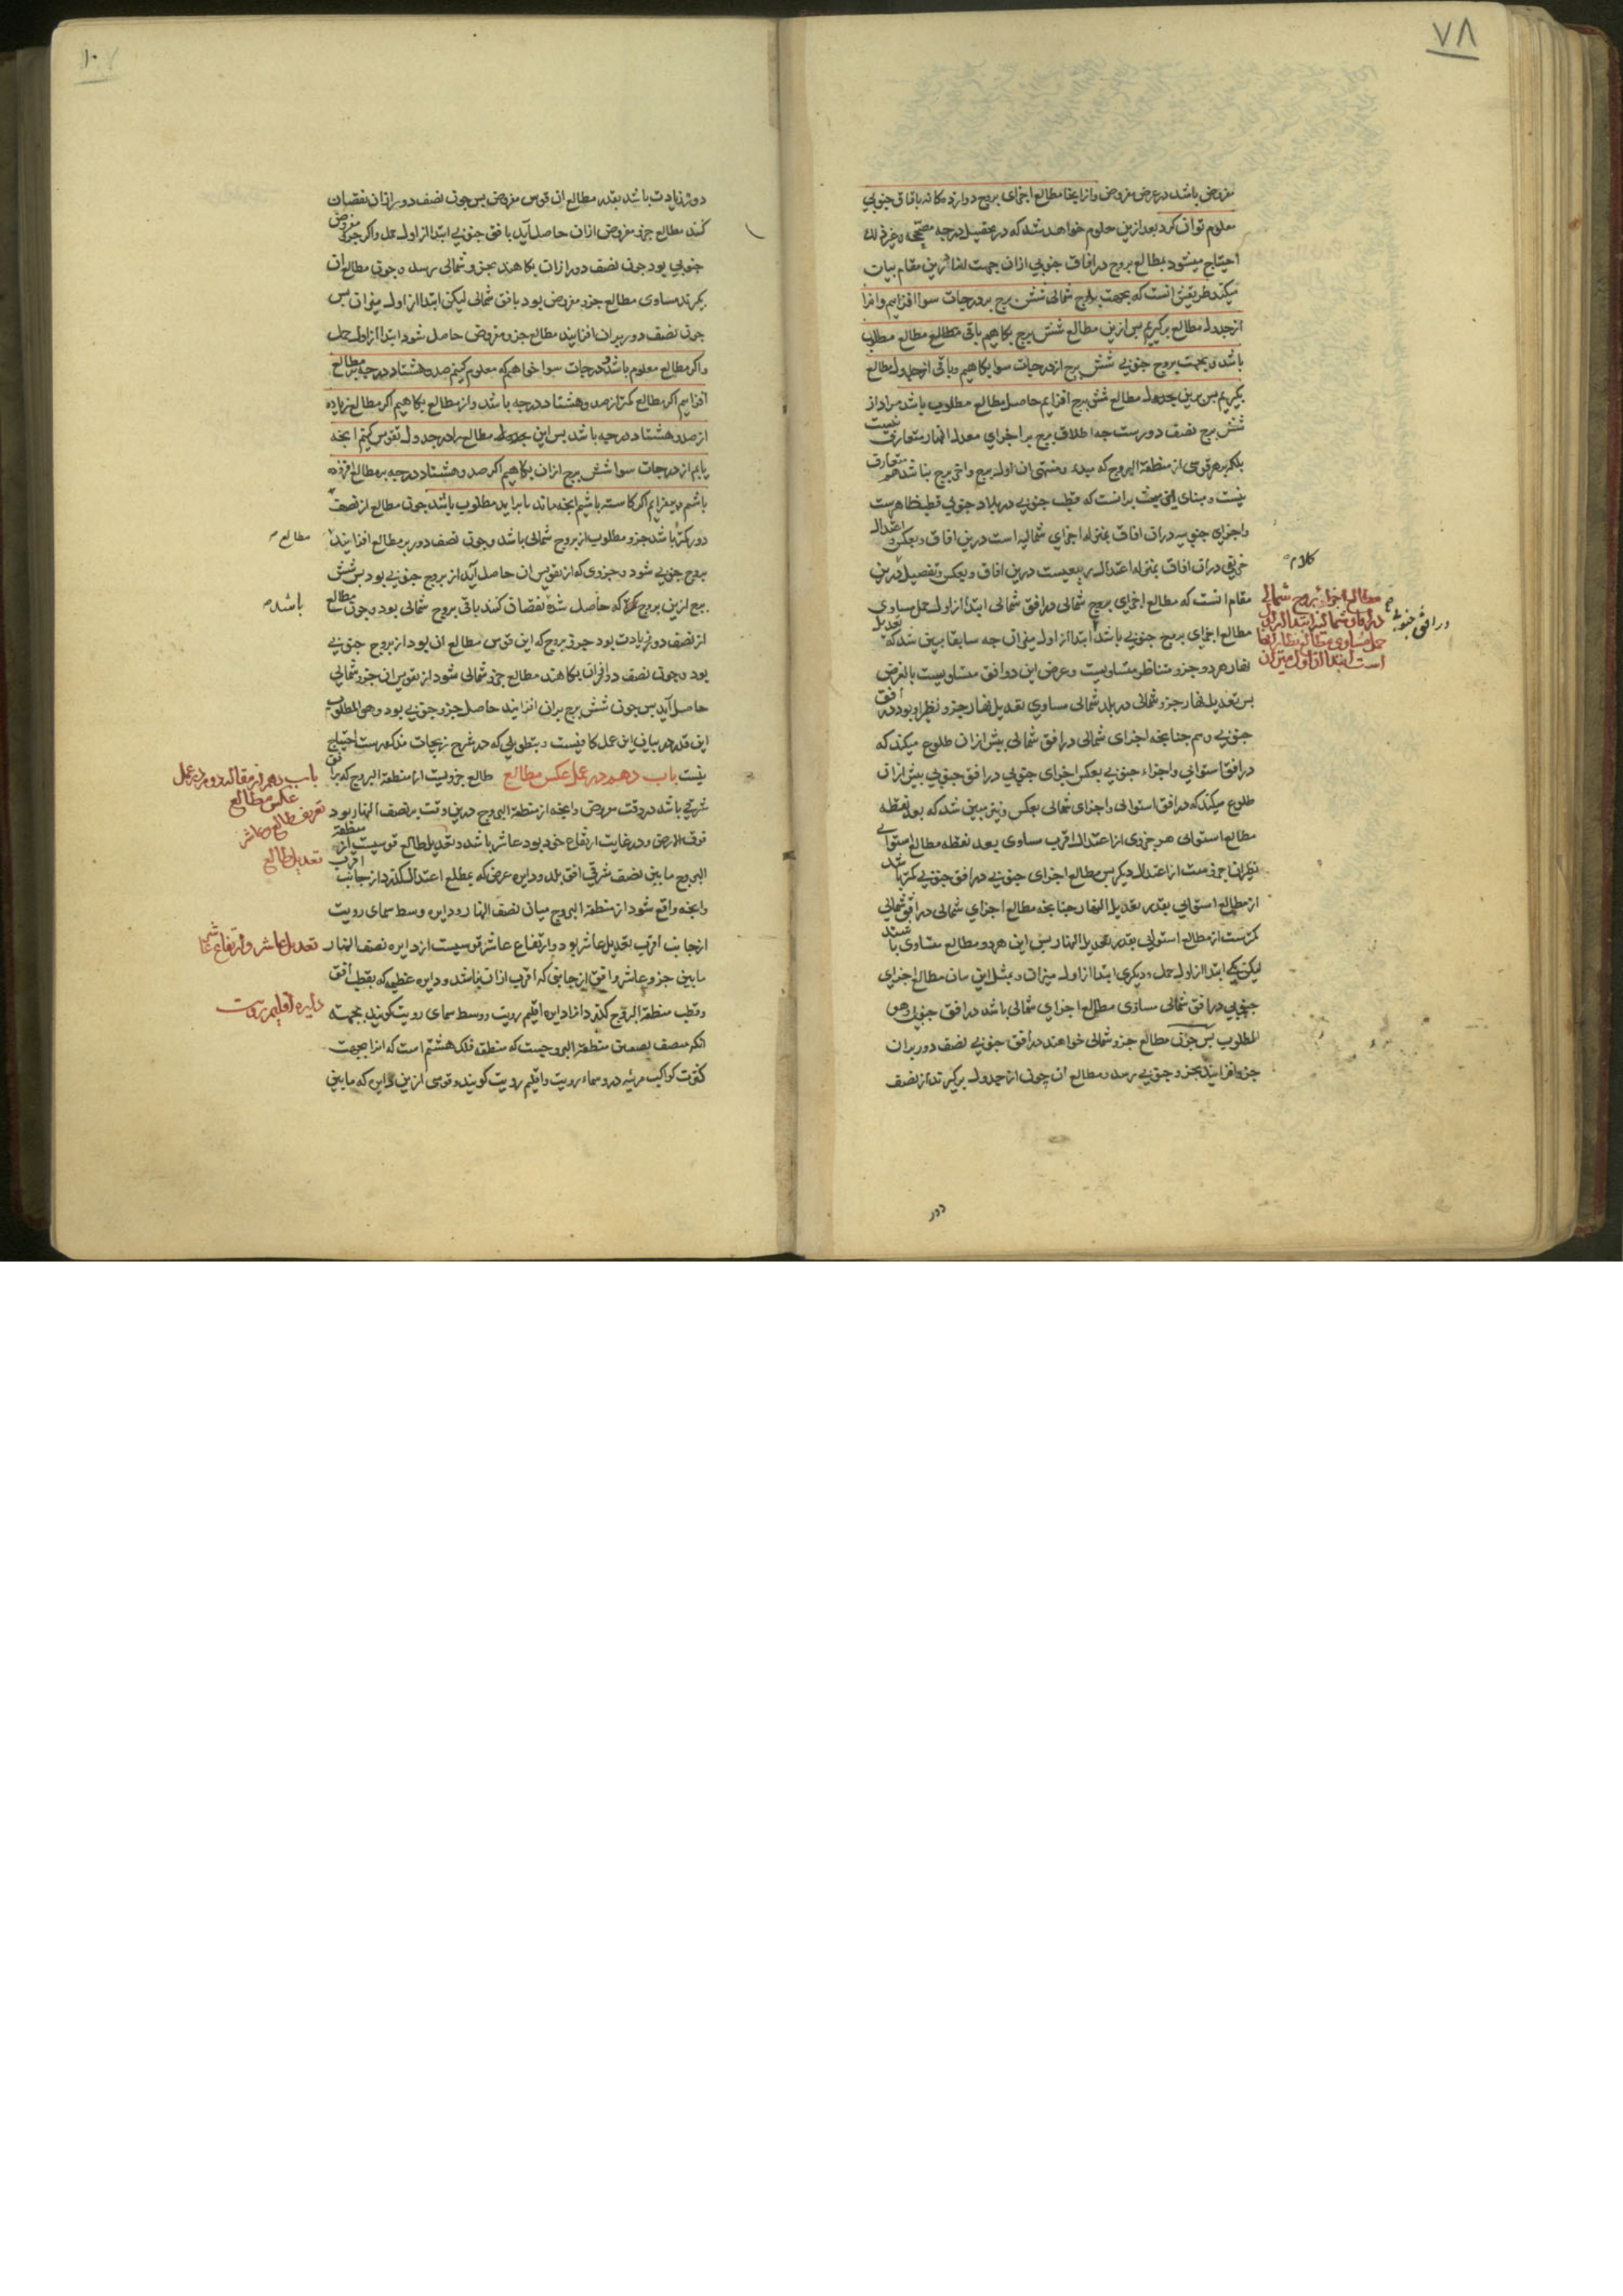 ۷۸
مفروض باشد در عرض مفروض و ازانجا مطالع اجزای بروج دوازده کانه بافاق جنوبی
معلوم توان کرد بعد ازین معلوم خواهد شد که در تحصیل درجه
احتیاج میشود بمطالع بروج در افاق جنوبی ازان جهت درین مقام بیان
میکند طریقش انست که بجهت بروج شمالی شش برج بر درجات سوا افزاییم و انرا
از جدول مطالع برکیریم پس ازین مطالع شش برج بکاهیم باقی مطالع مطلوب
باشد و بجهت بروج جنوبی شش برج از درجات سوا بکاهیم و باقی از جدول مطالع
بکیریم پس برین مطالع شش برج افزاییم حاصل مطالع مطلوب باشد مراد از
شش برج نصف دورست چه اطلاق برج بر اجزای معدل النهار متعارف نیست
بلکه بر هر قوسی از منطقة البروج که مبدء و منتهی ان اول برج و اخر برج نباشد هم متعارف
نیست و بنای این بحث برانست که قطب جنوبی در بلاد جنوبی قطب ظاهرست
و اجزای جنوبیه دران افاق بمنزله اجزای شمالیه است درین افاق و بعکس و اعتدال
خریفی دران افاق بمنزله اعتدال ربیعیست درین افاق و بعکس و تفصیل درین
کلام
مقام انست که مطالع اجزای بروج شمالی در افق شمالی ابتدا از اول حمل مساوی
مطالع اجزای بروج جنوبی باشد ابتدا از اول میزان چه سابقا مبین شد که تعدیل
مطالع اجزاء بروج شمالی
در افاق شمالیه ابتدا از اول
حمل مساوی مطالع نظایر انها
است ابتدا از اول میزان
در افق جنوبی
نهار هر دو جزو متناظر متساویست و عرض این دو افق متساویست بالفرض
پس تعدیل نهار جزو شمالی در بلد شمالی مساوی تعدیل نهار جزو نظیر او بود در افق
جنوبی و هم چنانچه اجزای شمالی در افق شمالی پیش ازان طلوع میکند که
در افق استوائی و اجزاء جنوبی بعکس اجزای جنوبی در افق جنوبی پیش ازان
طلوع میکند که در افق استوائی و اجزای شمالی بعکس و نیز مبین شد که بعد نقطه
مطالع استوائی هر جزوی از اعتدال اقرب مساوی بعد نقطه مطالع استوائی
نظیر است از اعتدال دیکر پس مطالع اجزای جنوبی در افق جنوبی کمتر باشد
از مطالع استوائی بقدر تعدیل النهار چنانچه مطالع اجزای شمالی در افق شمالی
کمترست از مطالع استوائی بقدر تعدیل النهار پس این هر دو مطالع متساوی باشند
لیکن یکی ابتدا از اول حمل و دیکری ابتدا از اول میزان و بمثل این بیان مطالع اجزای
جنوبی در افق شمالی مساوی مطالع اجزای شمالی باشد در افق جنوبی و هو
المطلوب پس چون مطالع جزو شمالی خواهند در افق جنوبی نصف دور بران
جزو افزایند بجزو جنوبی رسد و مطالع ان چون از جدول برکیرند از نصف
دور
۱۰
دور زیادت باشد بقدر مطالع ان قوس مفروض پس چون نصف دور ازان نقصان
کنند مطالع جزو مفروض ازان حاصل آید بافق جنوبی ابتدا از اول حمل و اکر جزو مفروض
جنوبی بود چون نصف دور ازان بکاهند بجزو شمالی رسد و چون مطالع ان
بکیرند مساوی مطالع جزو مفروض بود بافق شمالی لیکن ابتدا از اول میزان پس
چون نصف دور بران افزایند مطالع جزو مفروض حاصل شود ابتدا از اول حمل
و اکر مطالع معلوم باشد و درجات سوا خواهیم که معلوم کنیم صد و هشتاد درجه بر مطالع
افزاییم اکر مطالع کمتر از صد و هشتاد درجه باشد و از مطالع بکاهیم اکر مطالع زیاده
از صد و هشتاد درجه باشد پس این مطالع را در جدول تقویس کنیم انچه
یابیم از درجات سوا شش برج ازان بکاهیم اکر صد و هشتاد درجه بر مطالع افزوده
باشیم و بیفزاییم اکر کاسته باشیم انچه ماند یا براید مطلوب باشد چون مطالع از نصف
دور کمتر باشد جزو مطلوب از بروج شمالی باشد و چون نصف دور بر مطالع افزایند مطالع
بروج جنوبی شود و جزوی که از تقویس ان حاصل آید از بروج جنوبی بود پس شش
برج ازین بروج که حاصل شده نقصان کنند باقی بروج شمالی بود و چون مطالع باشد
از نصف دور زیادت بود جزو بروج که این قوس مطالع ان بود از بروج جنوبی
بود و چون نصف دور ازان بکاهند مطالع جزو شمالی شود از تقویس ان جزو شمالی
حاصل آید پس چون شش برج بران افزایند حاصل جزو جنوبی بود و هو المطلوب
این قدر در بیان این عمل کافیست و بتطویلی که در شرح زیجات مذکورست احتیاج
نیست باب دهم در عمل عکس مطالع طالع جزویست از منطقة البروج که بر افق
باب دهم از مقاله دوم در عمل
عکس مطالع
شرقی باشد در وقت مفروض و انچه از منطقة البروج درین وقت بر نصف النهار بود
تعریف طالع و عاشر
فوق الارض و در غایت ارتفاع خود بود عاشر باشد و تعدیل طالع قوسیست از منطقة
تعدیل طالع
البروج ما بین نصف شرقی افق بلد و دایره عرض که بمطلع اعتدال کذرد از جانب اقرب
و انچه واقع شود از منطقة البروج میان نصف النهار و دایره وسط سمای رویت
ازجانب اقرب تعدیل عاشر بود و ارتفاع عاشر قوسیست از دایره نصف النهار
تعدیل عاشر و ارتفاع عاشر
ما بین جزو عاشر و افق ازجانبی که اقرب ازان نباشد و دایره عظیمه که بقطب افق
و قطب منطقة البروج کذرد انرا دایره اقلیم رویت و وسط سمای رویت کویند بجهت
دایره اقلیم رویت
انکه منصف نصف منطقة البروجیست که منطقه فلک هشتم است که انرا بجهت
کثرت کواکب مرئیه درو سماء رویت و اقلیم رویت کویند و قوسی ازین دایره که ما بین